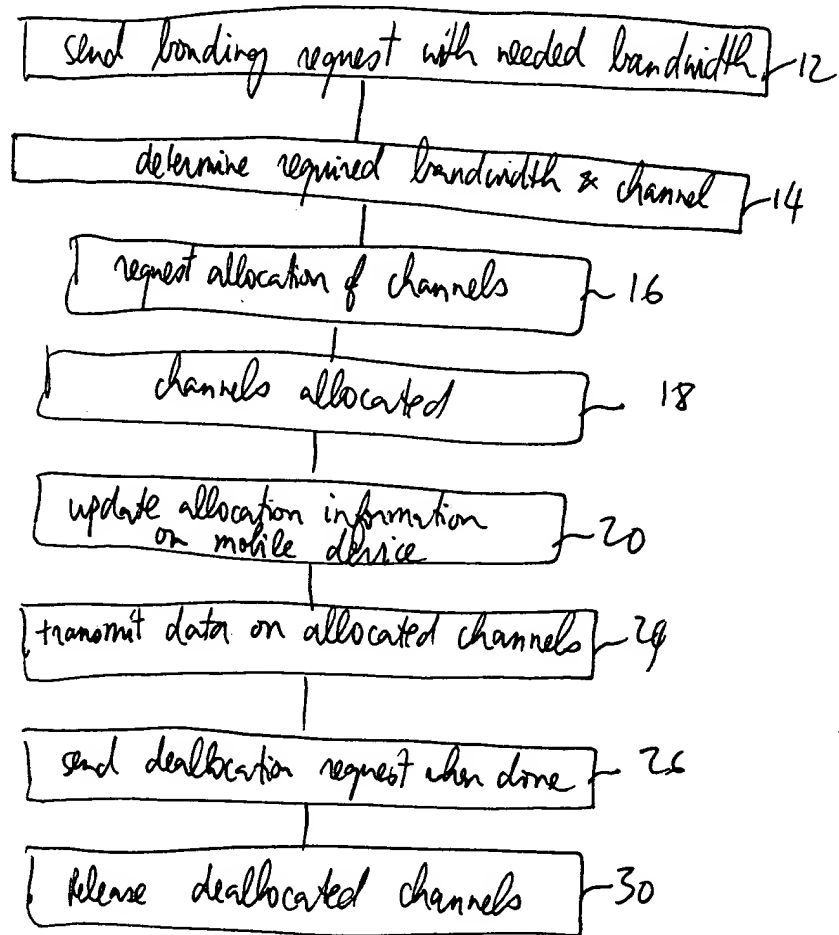 send bonding request with needed bandwidth. 12
determine required bandwidth & channel 14
request allocation of channels 16
channels allocated 18
update allocation information
on mobile device 20
transmit data on allocated channels 24
send deallocation request when done 26
release deallocated channels 30